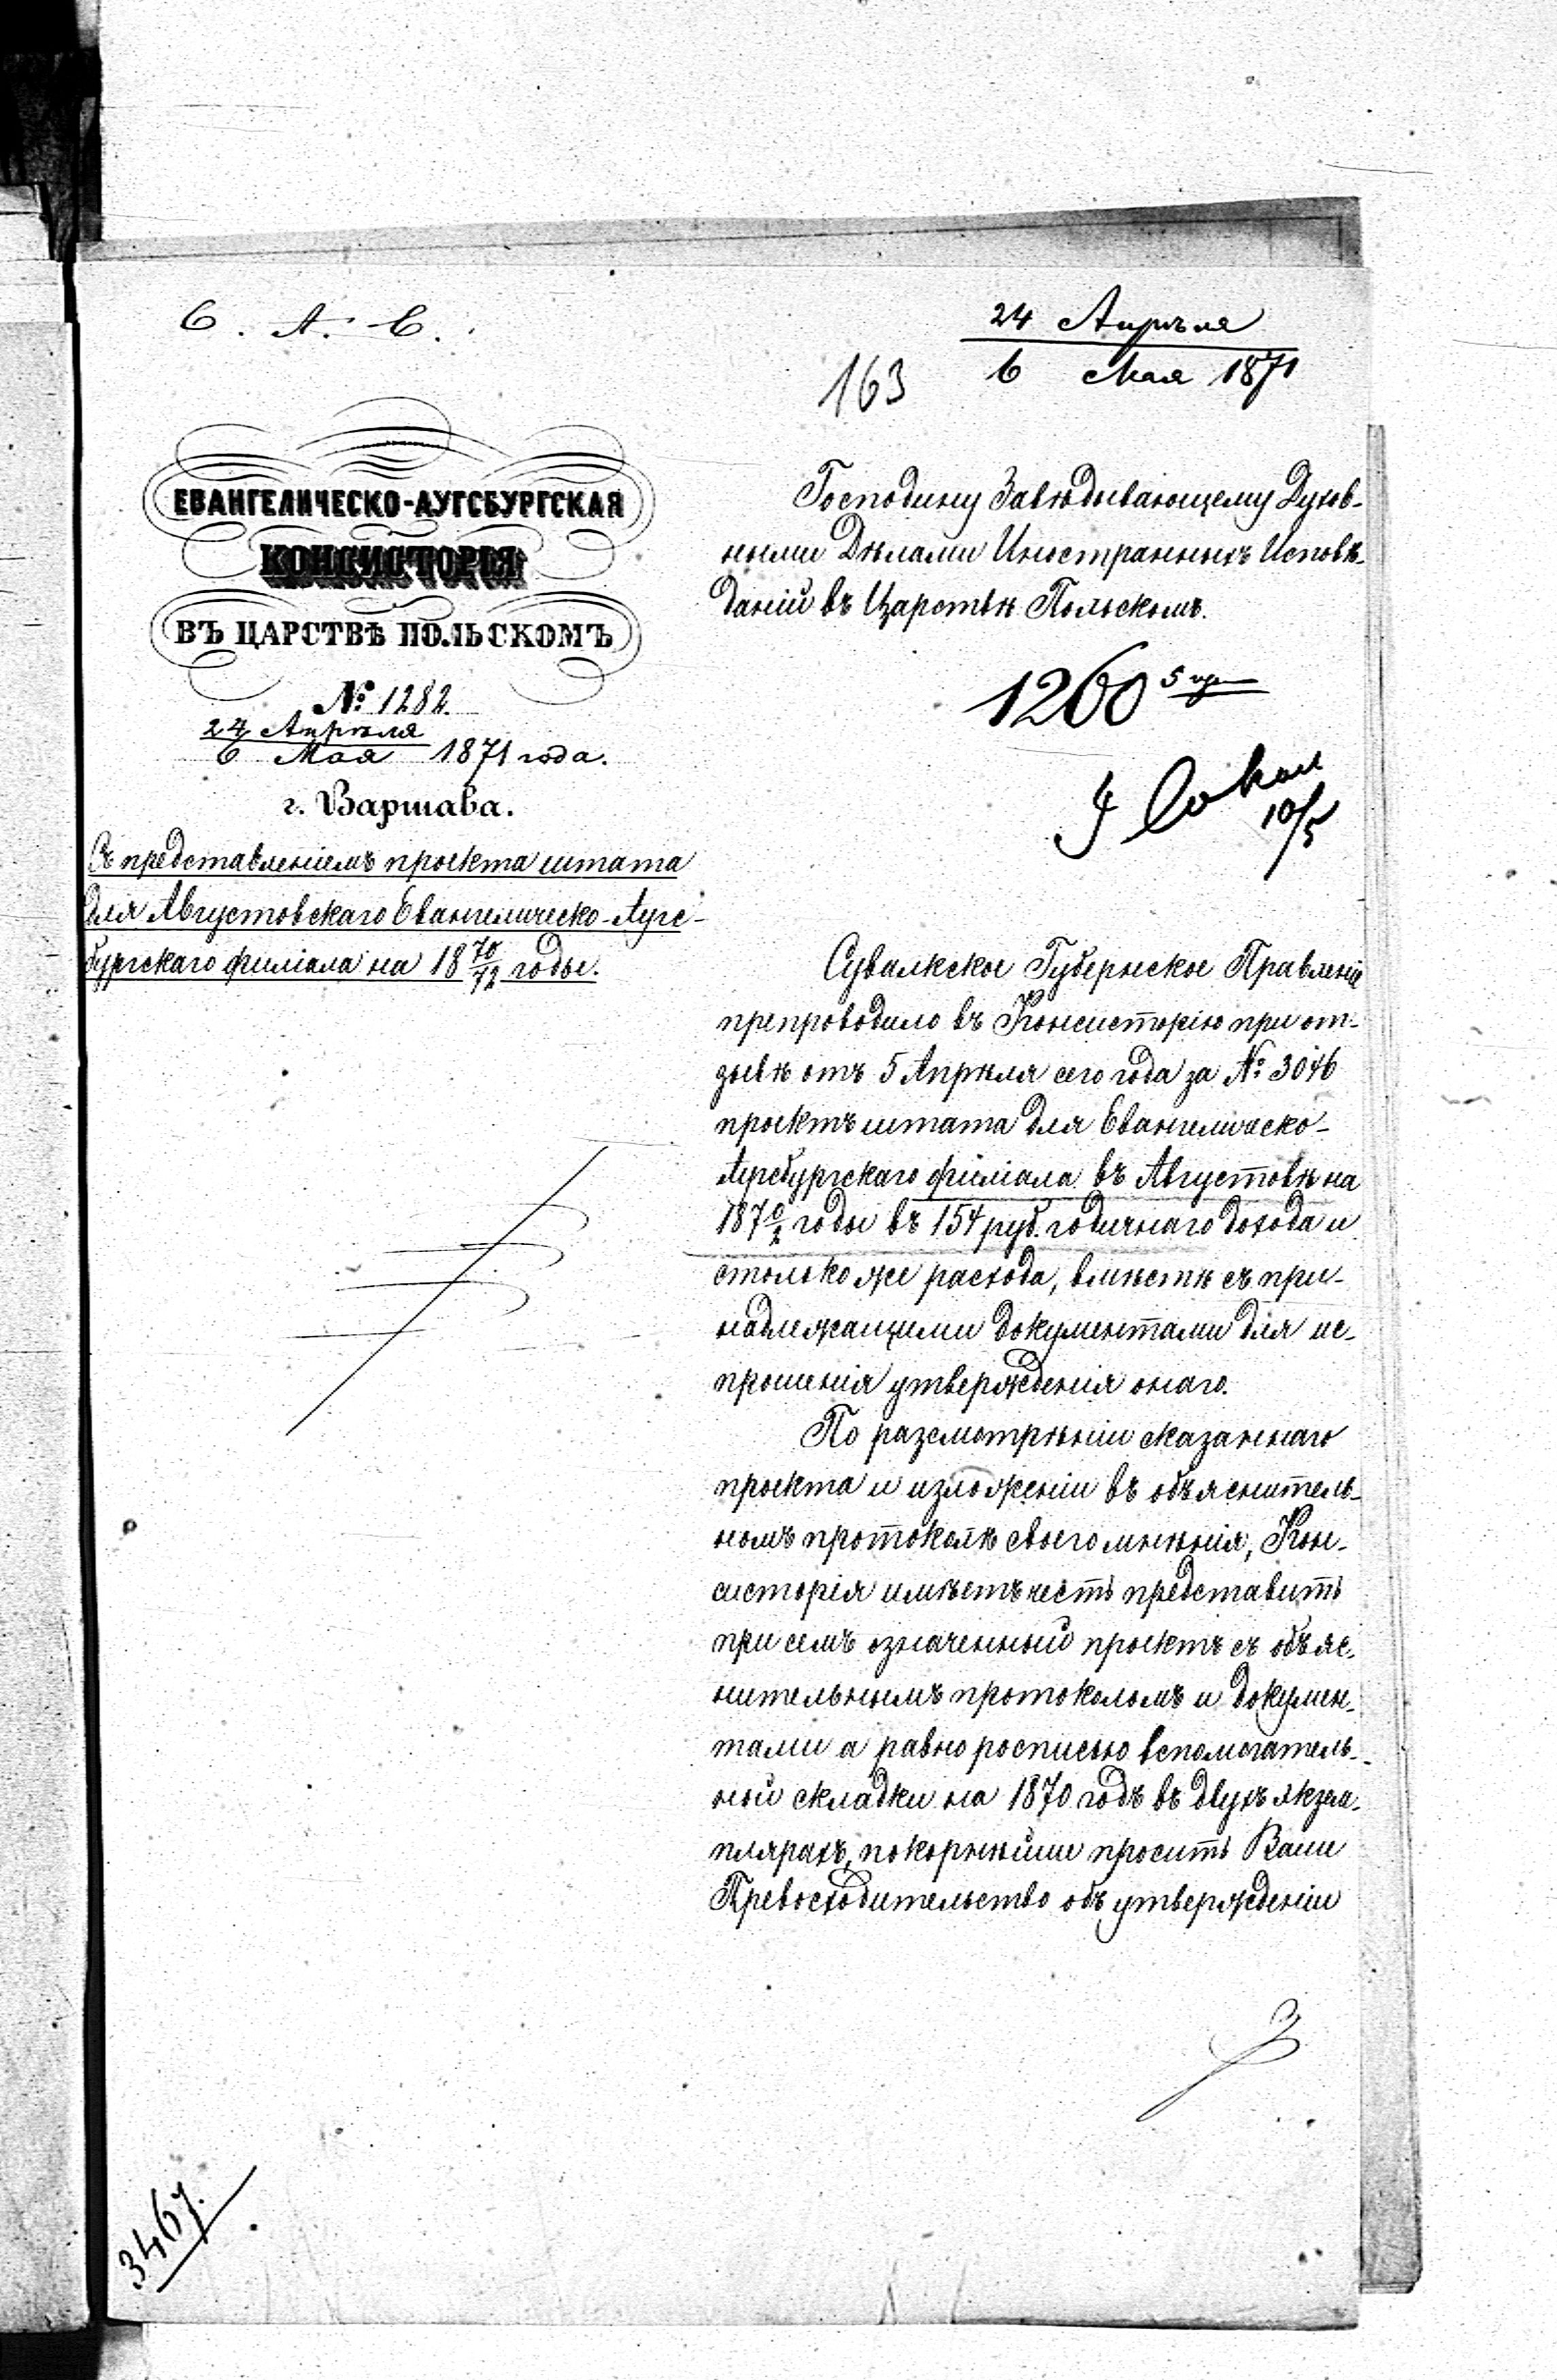 Е. А. С.
24 Апрѣля
6 Мая 1871
163
ЕВАНГЕЛИЧЕСКО-АУГСБУРГСКАЯ
КОНСИСТОРІЯ
ВЪ ЦАРСТВѢ ПОЛЬСКОМЪ
№ 1282.
24 Апрѣля
6 Мая 1871 года.
г. Варшава.
Съ представленіемъ проекта штата
для Августовскаго Евангелическо-Аугс-
бургскаго филіала на 18 70/72 годы.
Господину Завѣдывающему Духов-
ными Дѣлами Иностранныхъ Исповѣ-
даній въ Царствѣ Польскомъ.
1260
10/5
Сувалкское Губернское Правленіе
препроводило въ Консисторію при от-
зывѣ отъ 5 Апрѣля сего года за № 3046
проектъ штата для Евангелическо-
Аугсбургскаго филіала въ Августовѣ на
187 0/2 годы въ 154 руб. годичнаго дохода и
столько же расхода, вмѣстѣ съ при-
надлежащими документами для ис-
прошенія утвержденія онаго.
По разсмотрѣніи сказаннаго
проекта и изложеніи въ объяснитель-
номъ протоколѣ своего мнѣнія, Кон-
систорія имѣетъ честь представить
при семъ означенный проектъ съ объяс-
нительнымъ протоколомъ и докумен-
тами а равно росписью вспомогатель-
ной складки на 1870 годъ въ двухъ якзем-
плярахъ, покорнѣйше просить Ваше
Превосходительство объ утвержденіи
3467.